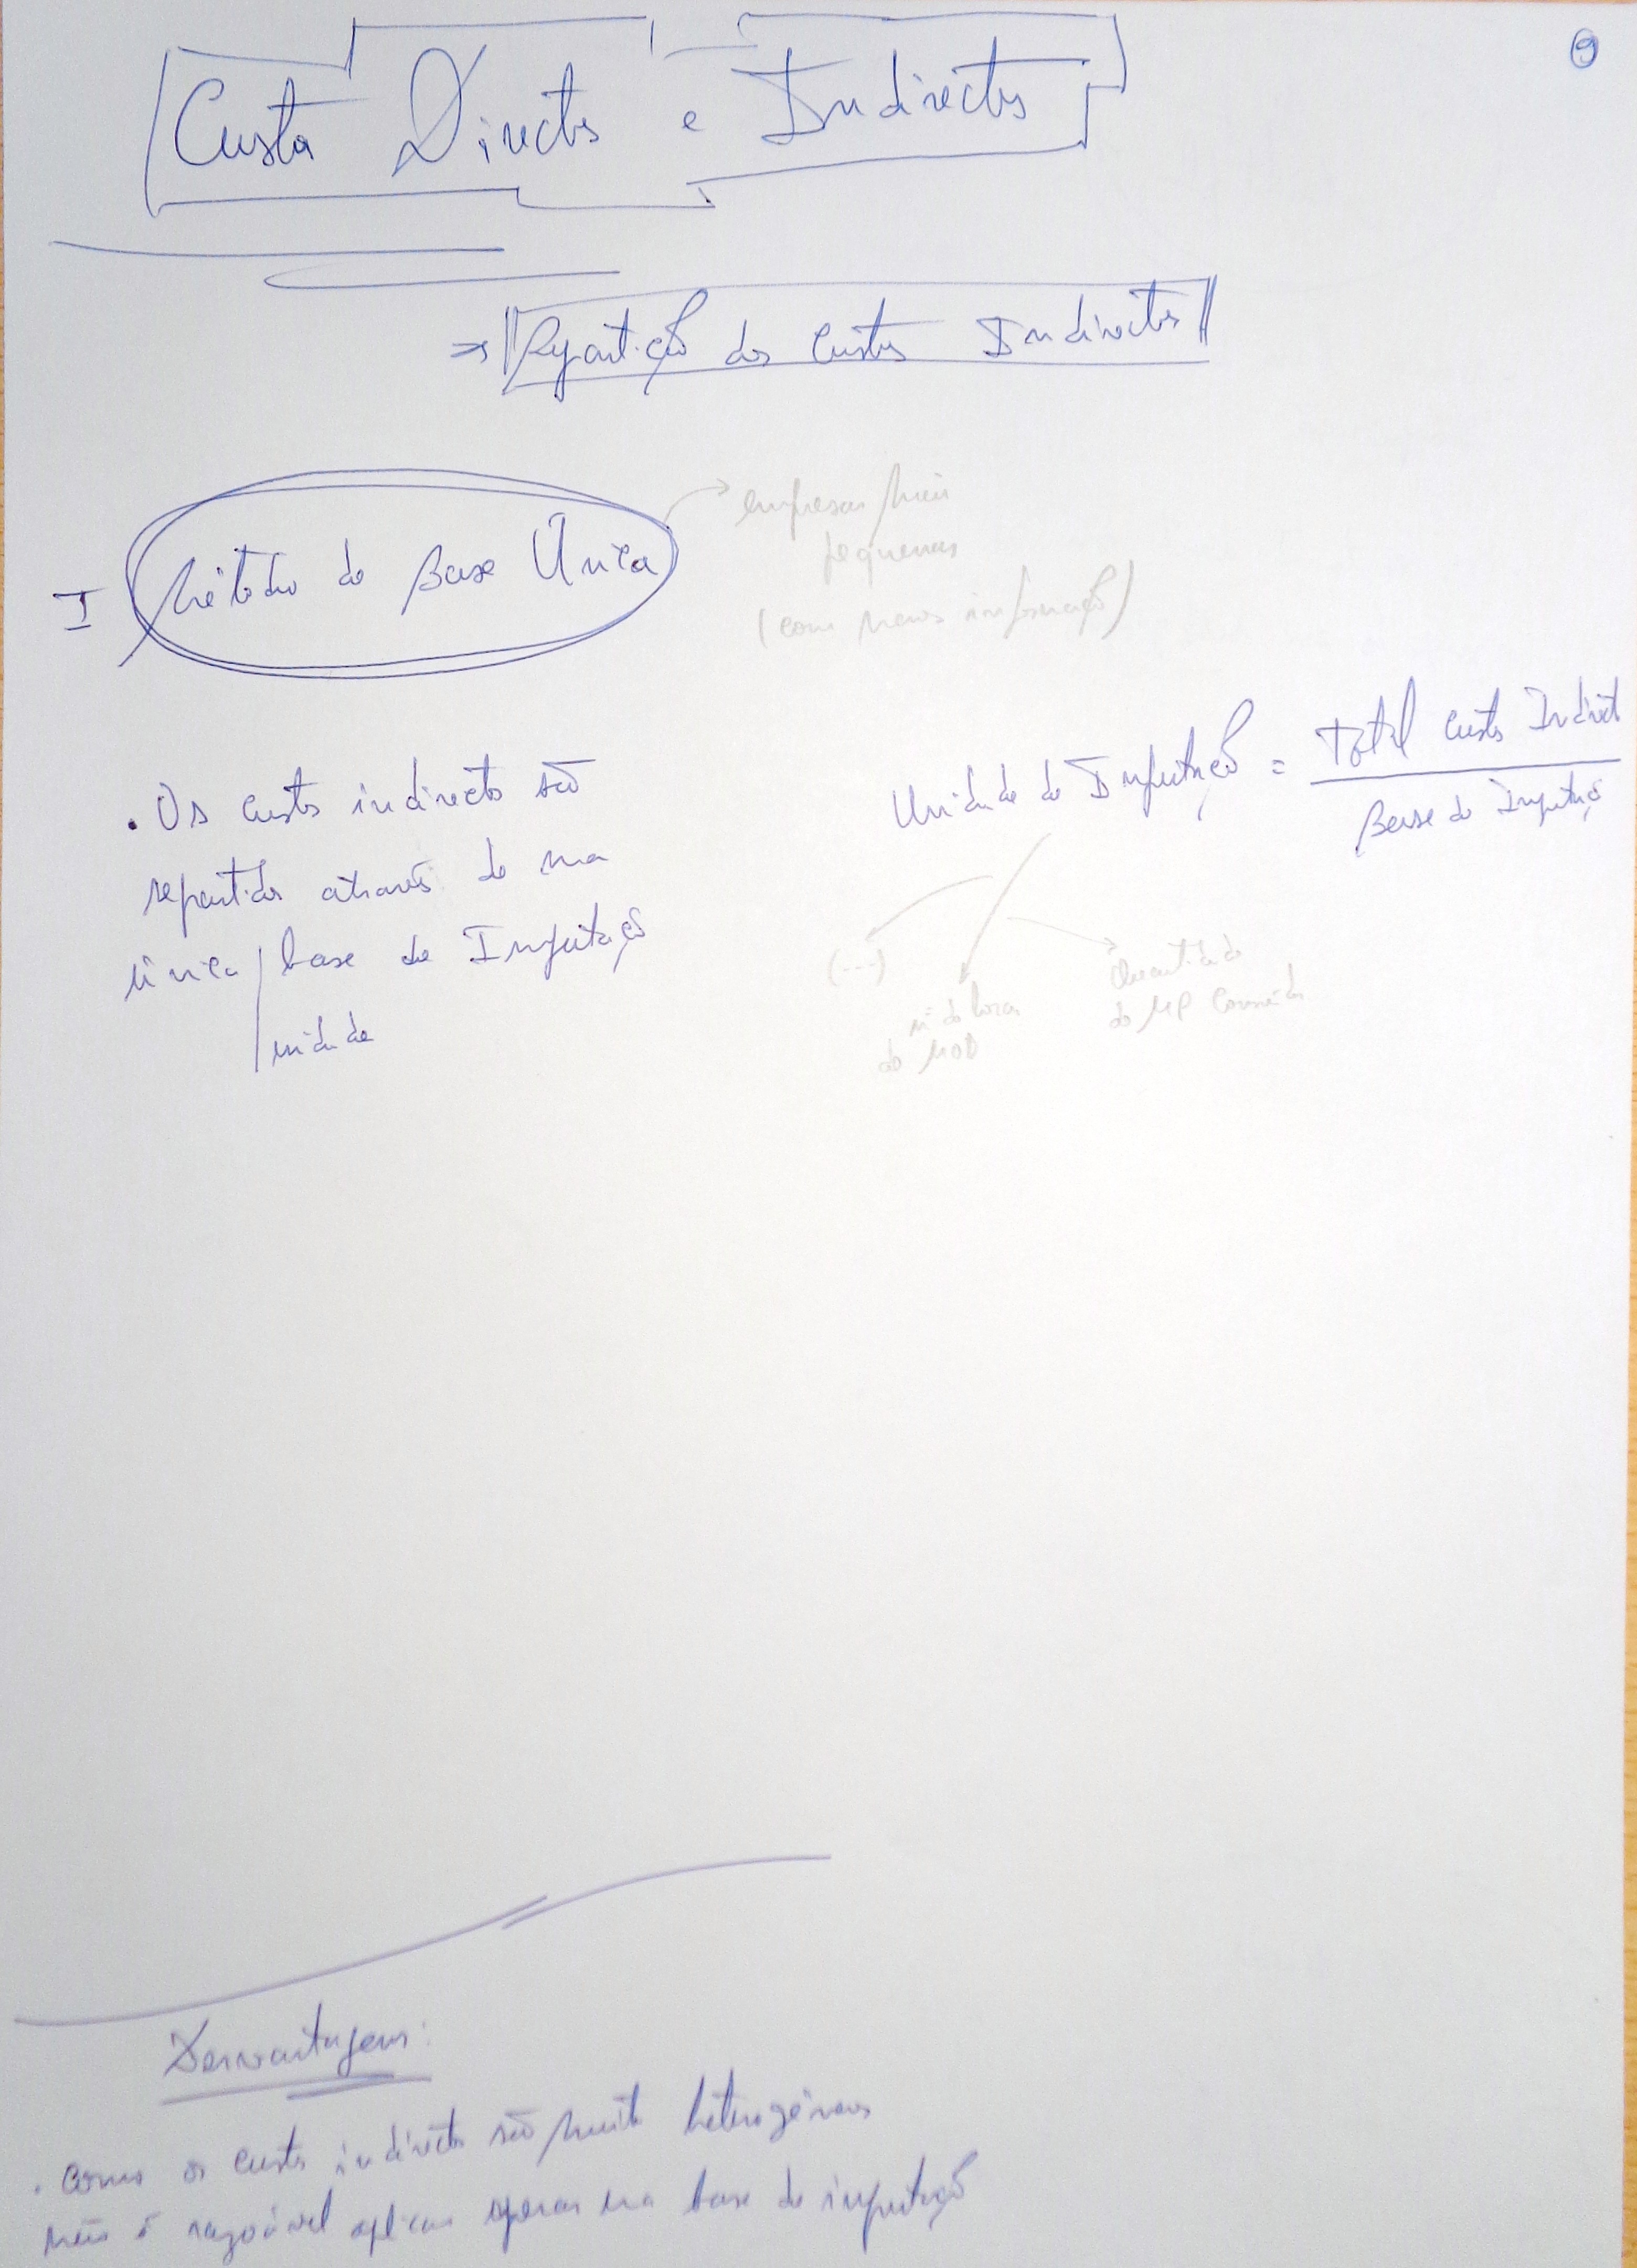 9
Custos Directos e Indirectos
→ Repartição dos Custos Indirectos
empresas mais
pequenas
(com menos informação)
I Método de Base Única
Unidade de Imputação = Total Custos Indirect
Base de Imputaçã
. Os custos indirectos são
repartidos através de uma
única base de Imputação
unidade
(...)
nº de horas
de MOD
Quantidade
de MP Consumidas
Desvantagens:
. Como os custos indirectos são muito heterogéneos
não é razoável aplicar apenas uma base de imputação